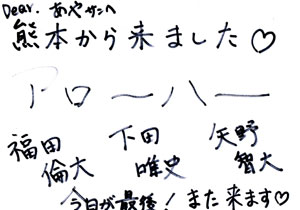 Dear. あやサンへ
熊本から来ました♡
アロ〜ハー
福田 下田 矢野
倫大 唯史 智大
今日が最後! また来ます♡